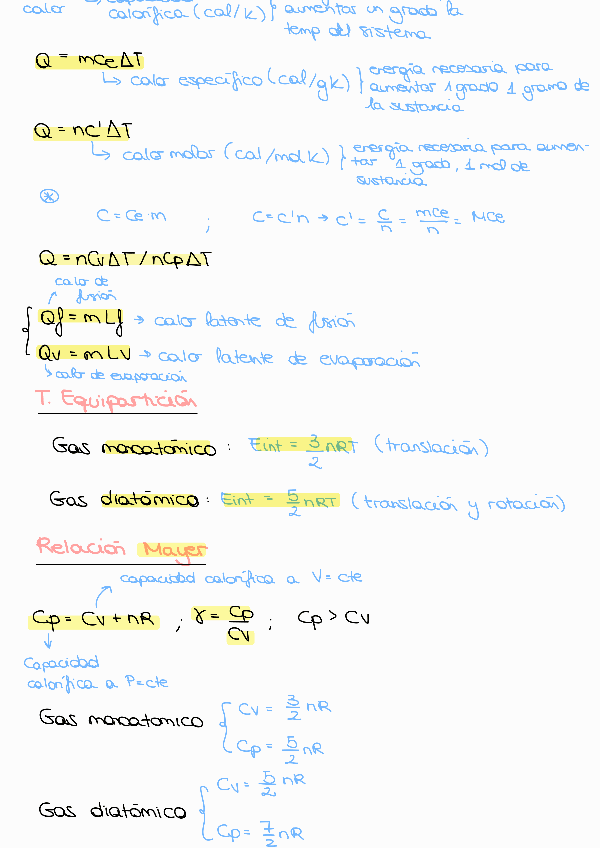 calor calorífica (cal/k) } aumentar un grado la
temp del sistema
Q = mCeΔT
↳ calor específico (cal/gk) } energía necesaria para
aumentar 1 grado 1 gramo de
la sustancia
Q = nC'ΔT
↳ calor molar (cal/mol k) } energía necesaria para aumen-
tar 1 grado, 1 mol de
sustancia
*
C = Ce·m ; C = C'n → C' = C/n = mCe/n = MCe
Q = nCvΔT / nCpΔT
calor de
fusión
Qf = m Lf → calor latente de fusión
Qv = m Lv → calor latente de evaporación
↳ calor de evaporación
T. Equipartición
Gas monoatómico : Eint = 3/2 nRT (translación)
Gas diatómico : Eint = 5/2 nRT (translación y rotación)
Relación Mayer
capacidad calorífica a V = cte
Cp = Cv + nR ; γ = Cp/Cv ; Cp > Cv
Capacidad
calorífica a P = cte
Gas monoatomico { Cv = 3/2 nR
Cp = 5/2 nR
Gas diatómico { Cv = 5/2 nR
Cp = 7/2 nR